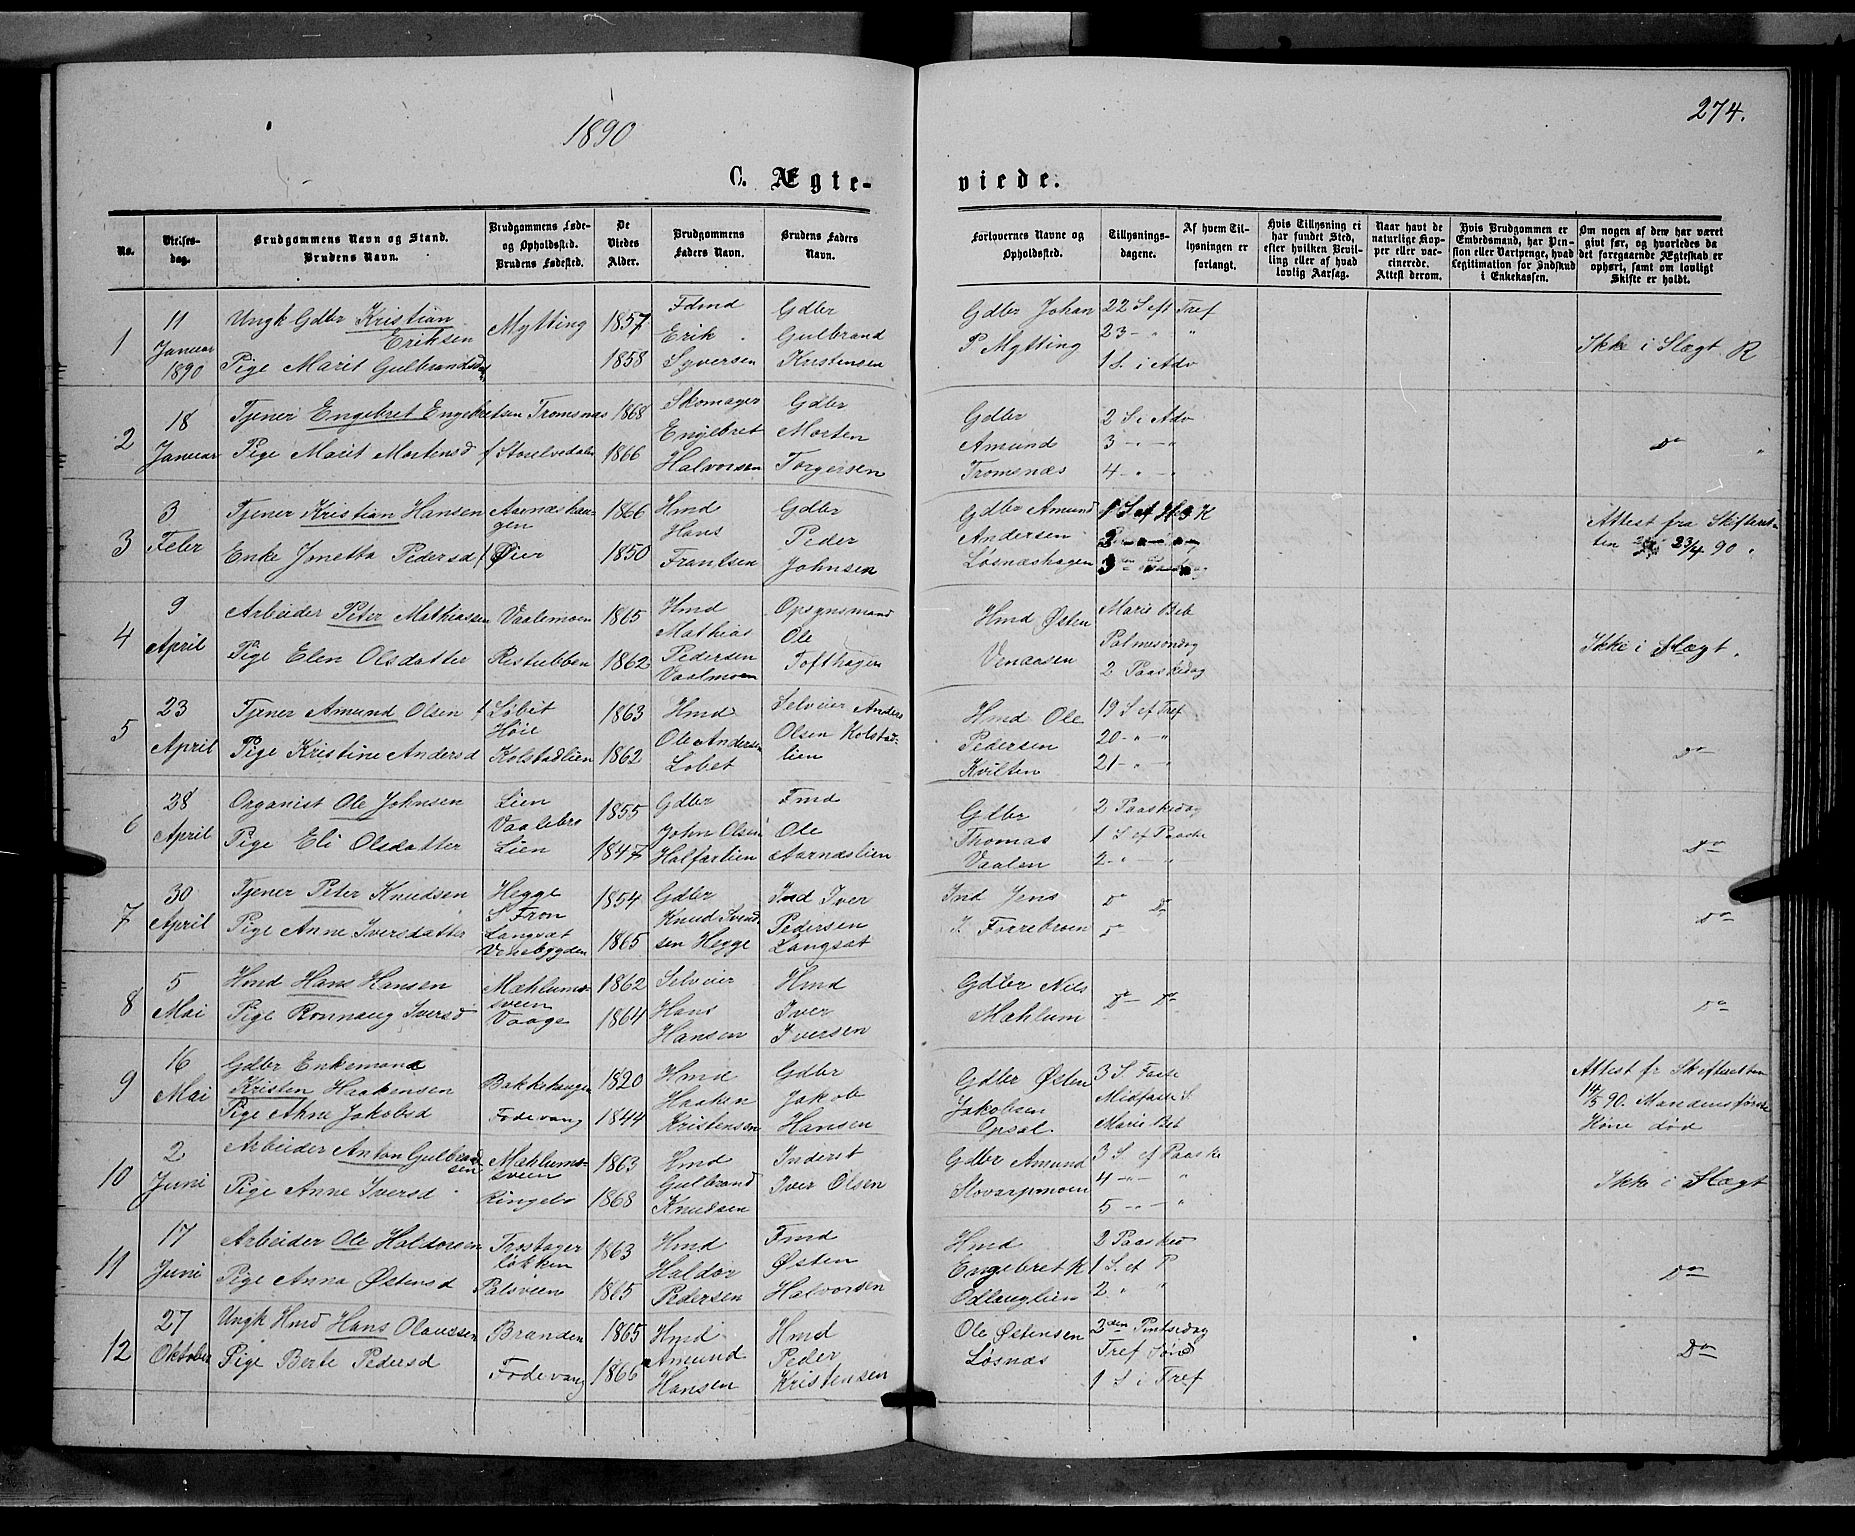 274.
1890
C. Ægte-viede.
No.
Vielses-dag.
Brudgommens Navn og Stand.
Brudens Navn.
Brudgommens Føde- og Opholdssted.
Brudens Fødested.
De Viedes Alder.
Brudgommens Faders Navn.
Brudens Faders Navn.
Forlovernes Navne og Opholdssted.
Tillysnings-dagene.
Af hvem Til-lysningen er forlangt.
Hvis Tillysning ei har fundet Sted, efter hvilken Bevil-ling eller af hvad lovlig Aarsag.
Naar havt de naturlige Kop-per eller vac-cinerede. Attest derom.
Hvis Brudgommen er Embedsmand, har Pen-sion eller Vartpenge, hvad Legitimation for Indskud i Enkekassen.
Om nogen af dem har været givt før, og hvorledes da det foregaaende Ægteskab er ophørt, samt om lovligt Skifte er holdt.
1
11 Januar 1890
Ungk Gdbr Kristian Eriksen
Pige Marit Gulbrandsd
Mytting
1857
1858
Fdmd Erik Syversen
Gdbr Gulbrand Kristensen
Gdbr Johan P Mytting
22 S eft Tref
23 - " "
1 S. i Adv
Ikke i Slægt R
2
18 Januar
Tjener Engebret Engebretsen Tromsnæs
Pige Marit Mortensd f Storelvedalen
1868
1866
Skomager Engebret Halvorsen
Gdbr Morten Torgersen
Gdbr Amund Tromsnæs
2 S i Adv
3 - " - "
4 - " - "
Do
3
3 Febr
Tjener Kristian Hansen
Enke Jonetta Pedersd f Øier
Aarnæshau-gen
1866
1850
Hmd Hans Frantsen
Gdbr Peder Johnsen
Gdbr Amund Andersen Løsnæshagen
1 S ef H 3 K
Attest fra Skifteret-ten 23/4 90
4
9 April
Arbeider Peter Mathiassen
Pige Elen Olsdatter
Vaalemoen
Ristubben
1865
1862
Hmd Mathias Pedersen Vaalmoen
Opsynsmand Ole Tofthagen
Hmd Østen Venaasen
Marie Beb
Palmesøndag
2 Paaskedag
Ikke i Slægt.
5
23 April
Tjener Amund Olsen f Løbet
Høie
Pige Kristine Andersd
Kolstadlien
1863
1862
Hmd Ole Andersen Lobet
Selveier Anders Olsen Kolstad-lien
Hmd Ole Pedersen Kvilten
19 S ef Tref
20 - " - "
21 - " - "
Do
6
28 April
Organist Ole Johnsen
Pige Eli Olsdatter
Lien
Vaalebro
Lien
1855
1847
Gdbr John Olsen Halfarlien
Fmd Ole Aarnæslien
Gdbr Thomas Vaalen
2 Paaskedag
1 S ef Paaske
2 - " - "
Do
7
30 April
Tjener Peter Knudsen
Pige Anne Iversdatter
Hegge
S Fron
Langsæt
Venebygden
1854
1865
Gdbr Knud Svend-sen Hegge
Ind Iver Pedersen Langsæt
Ind Jens J. Furrebroen
Do Do
Do
Do
8
5 Mai
Hmd Hans Hansen
Pige Ronnaug Iversd
Mæhlums-sveen
Vaage
1862
1864
Selveier Hans Hansen
Hmd Iver Iversen
Gdbr Nils Mæhlum
Do Do
Do
9
16 Mai
Gdbr Enkemand
Kristen Haakensen
Pige Ahne Jakobsd
Bakkehaugen
Fodevang
1820
1844
Hmd Haaken Kristensen
Gdbr Jakob Hansen
Gdbr Østen Jakobsen Opsal.
3 S. Faste
Midfaste S
Marie Beb
Attest fr Skifteretten
14/5 90. Mandens første Kone død
10
2 Juni
Arbeider Anton Gulbrand-sen
Pige Anne Iversd
Mæhlums-sveen
Ringebo
1863
1868
Hmd Gulbrand Knudsen
Inderst Iver Olsen
Gdbr Amund Stovarpmoen
3 S. ef Paaske
4 - " - "
5 - " - "
Ikke i Slægt
11
17 Juni
Arbeider Ole Haldorsen
Pige Anna Østensd
Trostager-løkken
Palsveen
1863
1865
Hmd Haldor Pedersen
Fmd Østen Halvorsen
Hmd Engebret K Odlauglien
2 Paasked
1 S. ef P
2. " "
Do
12
27 Oktober
Ungk Hmd Hans Olaussen
Pige Berte Pedersd
Branden
Fodevang
1865
1866
Hmd Amund Hansen
Hmd Peder Kristensen
Ole Østensen Løsnæs
3den Pintsedag
Tref Sønd
1 S i Tref
Do